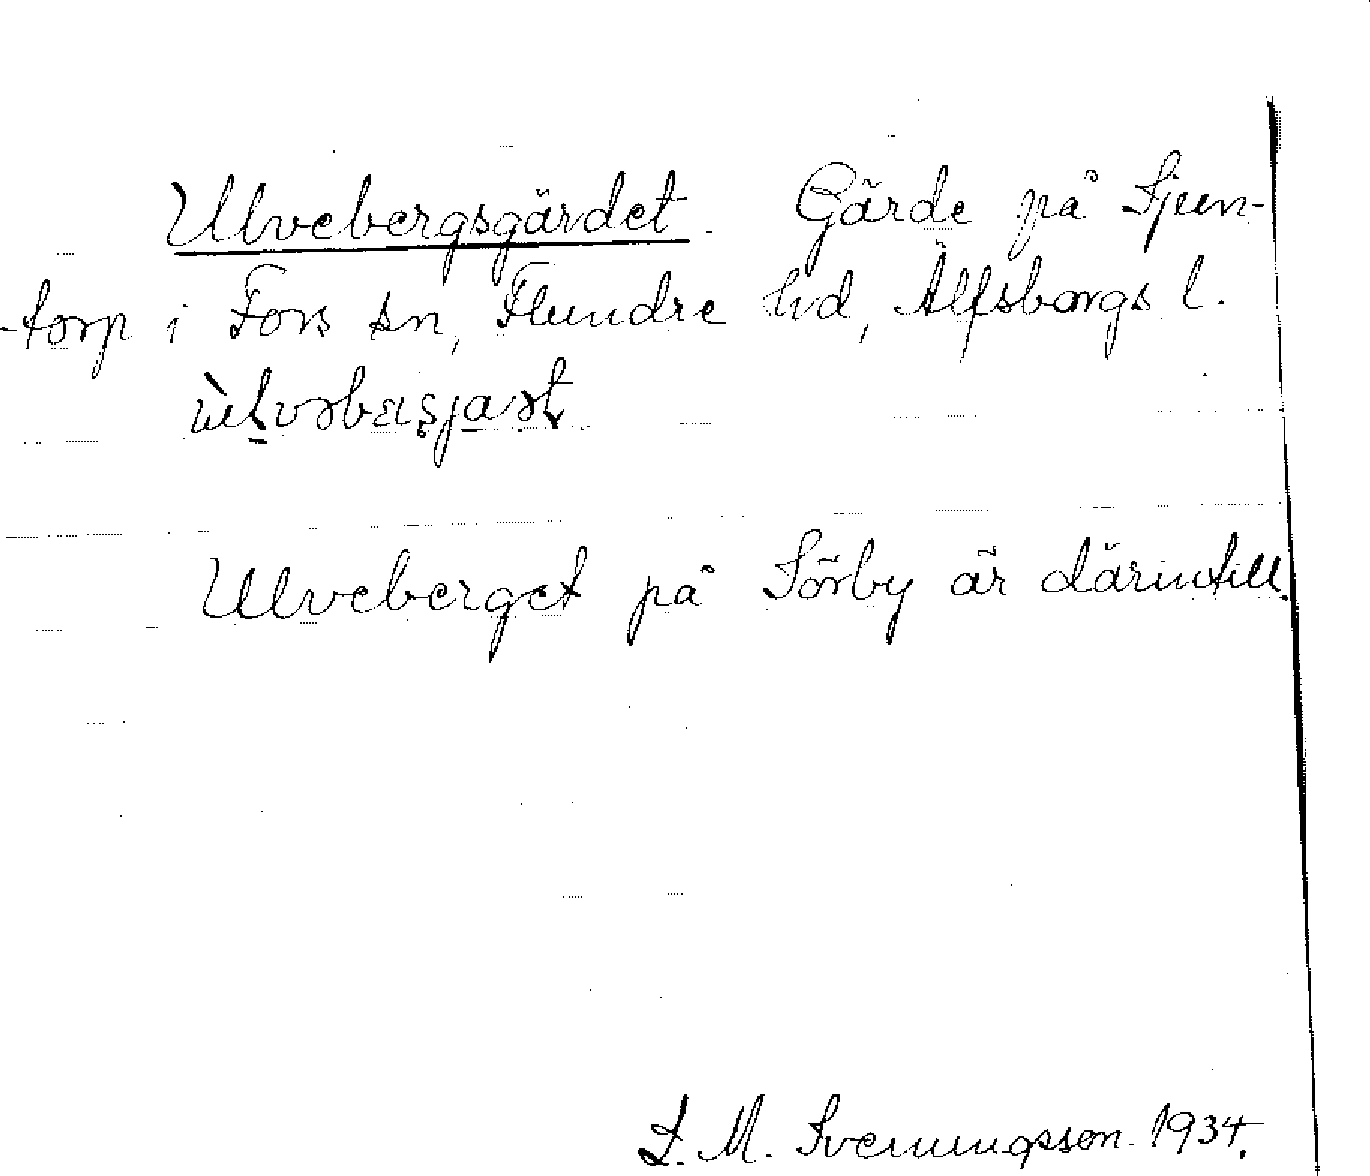 Ulvebergsgärdet. Gärde på Sjun-
-torp i Fors sn, Flundre hd, Älfsborgs l.
Ulveberget på Sörby är därintill.
S. M. Svenungsson 1934.